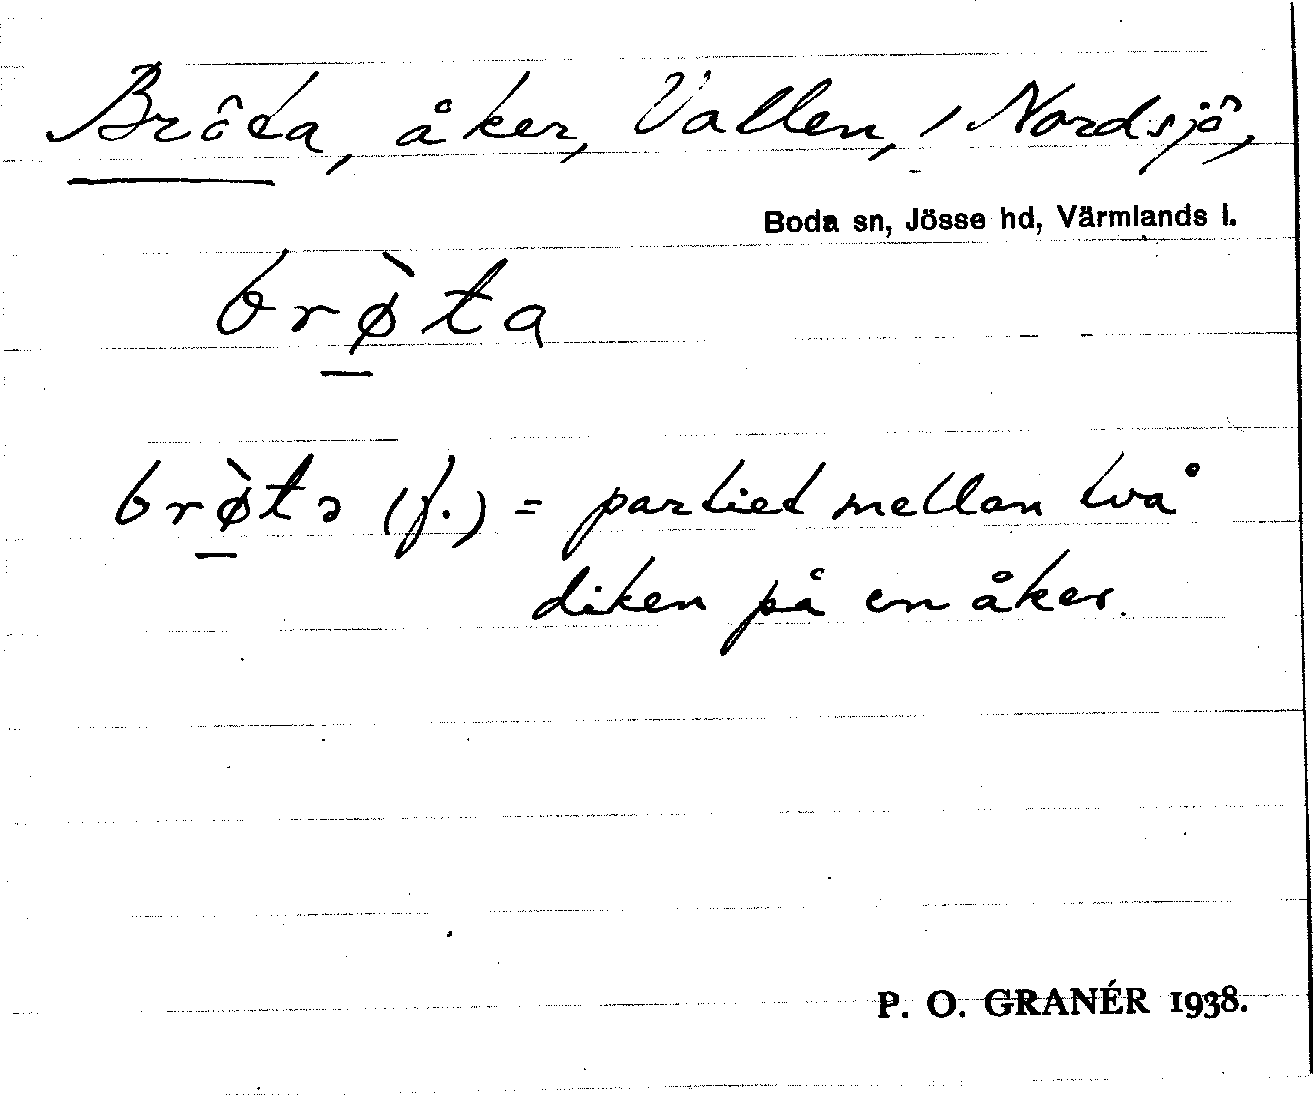 Bröta, åker, Vallen, / Nordsjö,
Boda sn, Jösse hd, Värmlands l.
brø̀ta
brø̀tə (f.) = partiet mellan två
diken på en åker.
P. O. GRANÉR 1938.